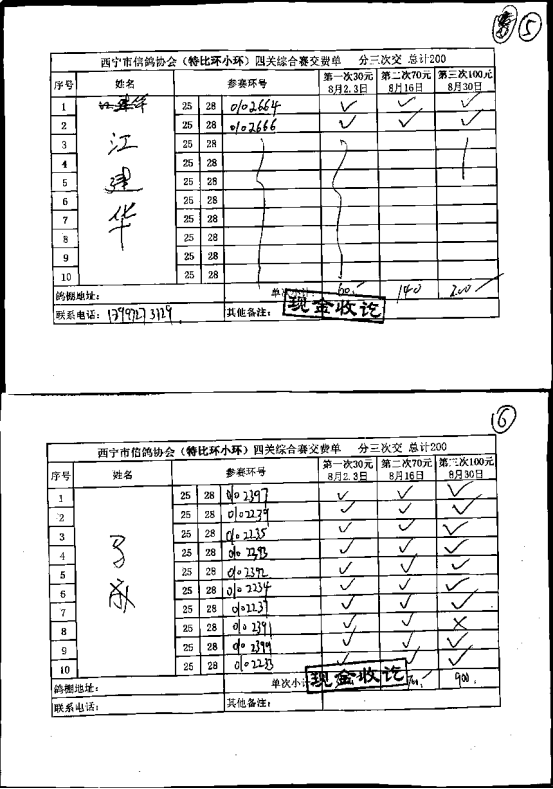 ⑤
西宁市信鸽协会（特比环小环）四关综合赛交费单 分三次交 总计200
序号 姓名 参赛环号 第一次30元 8月2.3日 第二次70元 8月16日 第三次100元 8月30日
1 25 28 0102664 ✓ ✓ ✓
2 25 28 0102666 ✓ ✓ ✓
3 江 25 28
4 25 28
5 建 25 28
6 25 28
7 华 25 28
8 25 28
9 25 28
10 25 28
鸽棚地址： 单次小计 60 140 200
联系电话： 其他备注： 现金收讫
⑥
西宁市信鸽协会（特比环小环）四关综合赛交费单 分三次交 总计200
序号 姓名 参赛环号 第一次30元 8月2.3日 第二次70元 8月16日 第三次100元 8月30日
1 25 28 0102397 ✓ ✓ ✓
2 25 28 0102239 ✓ ✓ ✓
3 25 28 0102235 ✓ ✓ ✓
4 25 28 0102393 ✓ ✓ ✓
5 25 28 0102392 ✓ ✓ ✓
6 25 28 0102234 ✓ ✓ ✓
7 25 28 0102237 ✓ ✓ ✓
8 25 28 0102391 ✓ ✓ ×
9 25 28 0102399 ✓ ✓ ✓
10 25 28 0102233 ✓ ✓ ✓
鸽棚地址： 单次小计 现金收讫 900
联系电话： 其他备注：